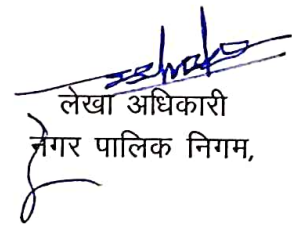 लेखा अधिकारी
नगर पालिक निगम,